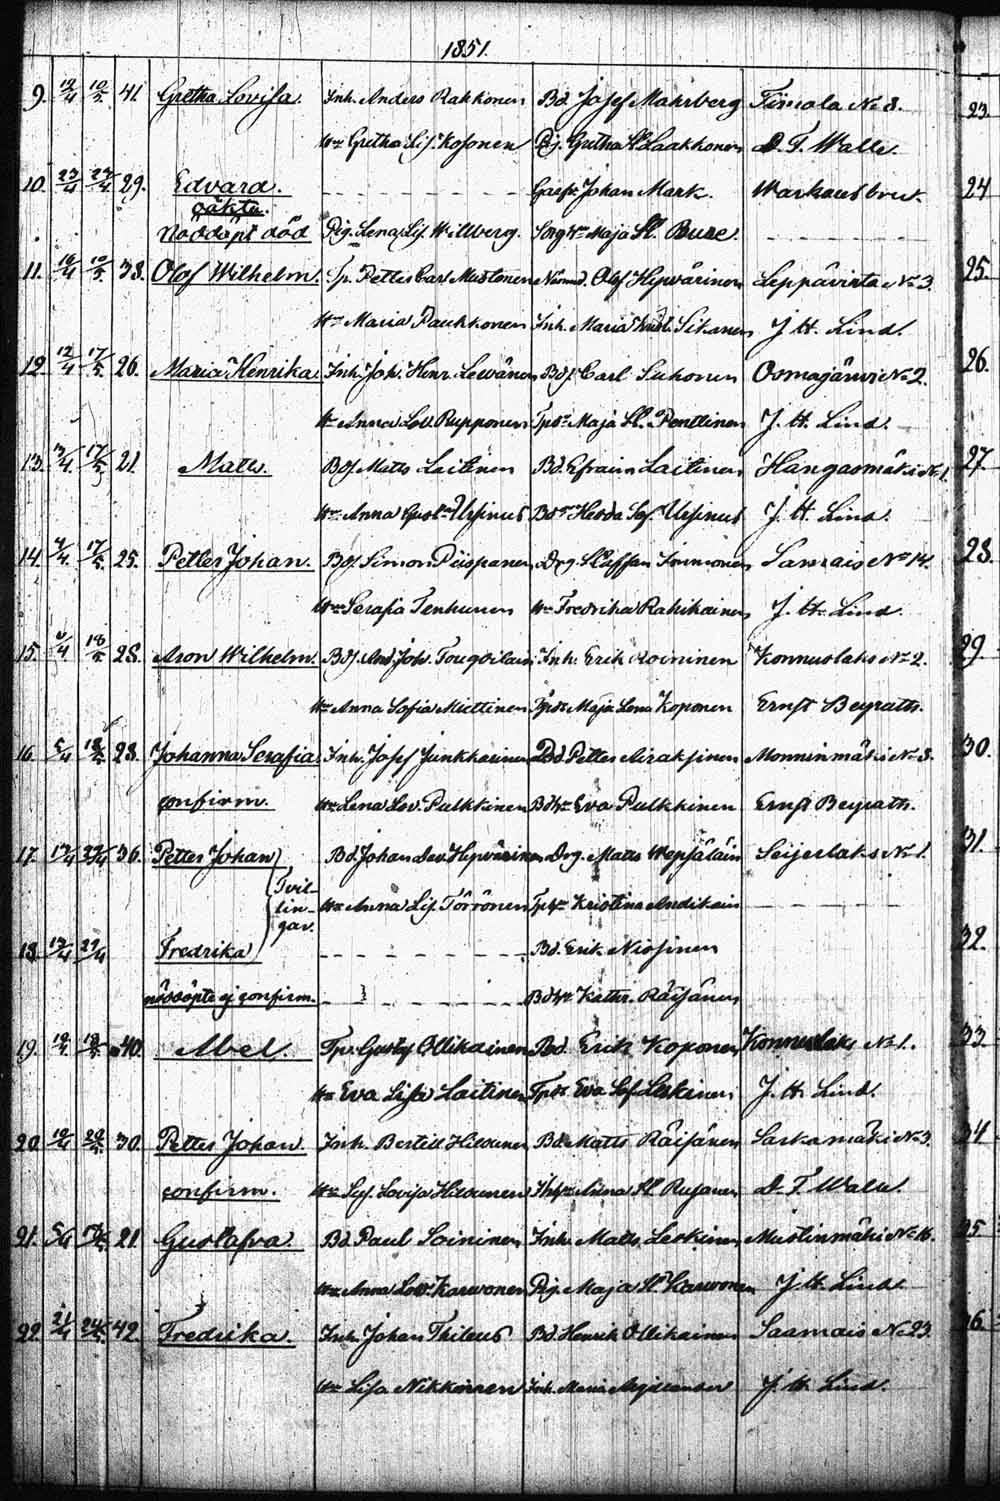 1851.
9. 19/4 10/5 41. Gretha Lovisa. Inh. Anders Rakkonen Bd. Josef Mahrberg Timola No 8. 23.
Hu Gretha Lis. Kosonen Pig. Gretha St. Laakkonen D. F. Walle.
10. 23/4 24/4 29. Edvard. Johan Mark. Warkaus bruk. 24
oäkta.
Nöddöpt död Pig. Lena Lis. Willberg. Maja St. Buze.
11. 10/5 38. Olof Wilhelm. Tp. Petter Carl Mustonen Nämnd. Olof Hyvärinen Leppävirta No 3. 25.
Hu Maria Paukkonen Inh. Maria Krist. Sikanen J. H. Lind.
12. 12/4 17/5 26. Maria Henrika. Inh. Joh. Henr. Lewänen Bds. Carl Suhonen Osmajärvi No 2. 26.
Hu Anna Lov. Rupponen Maja St. Penttinen J. H. Lind.
13. 17/5 21. Matts. Bds. Matts Laitinen Bd. Efraim Laitinen Kangasmäki No 1. 27
Hu Anna Gust. Ursinus Hedda Sof. Ursinus J. H. Lind.
14. 17/5 25. Petter Johan. Bds. Simon Piispanen Drg. Staffan Immonen Samais No 14. 28
Hu Serafia Tenhunen Hu Fredrika Rahikainen J. H. Lind.
15. 18/5 28. Aron Wilhelm. Bds. And. Joh. Inh. Erik Roininen Konnuslaks No 2. 29
Hu Anna Sofia Miettinen Maja Lena Koponen Ernst Beyrath.
16. 5/4 18/5 28. Johanna Serafia Inh. Josef Junkkarinen Bd. Petter Airaksinen Monninmäki No 8. 30.
confirm. Hu Lena Lov. Pulkkinen Bdhu Eva Pulkkinen Ernst Beyrath.
17. 17/4 27/4 36. Petter Johan Bd. Johan Dav. Hyvärinen Drg. Matts Wepsäläin Seijerlaks No 1. 31.
Tvil-
lin-
gar.
Hu Anna Lis. Törrönen Kristina Andikain
18. 17/4 27/4 Fredrika Bd. Erik Niosinen 32.
nöddöpte ej confirm. Bdhu Kathr. Räisänen
19. 40. Abel. Tp. Gustaf Ollikainen Bd. Erik Koponen Konnuslaks No 1. 33
Hu Eva Lisa Laitinen Eva Sof. Leskinen J. H. Lind.
20. 30. Petter Johan. Inh. Bertil Hiltunen Bd. Matts Räisänen Sarkamäki No 3. 34
confirm. Hu Lovisa Hiltunen Anna St. D. F. Walle.
21. 5/4 21. Gustafva. Bd. Paul Soininen Inh. Matts Leskinen Mustinmäki No 16. 35
Hu Anna Lov. Karwonen Pig. Maja St. Karwonen J. H. Lind.
22. 21/4 42. Fredrika. Inh. Johan Thileus Bd. Henrik Ollikainen Saamais No 23. 36.
Hu Lisa Nikkinen Inh. Maria J. H. Lind.